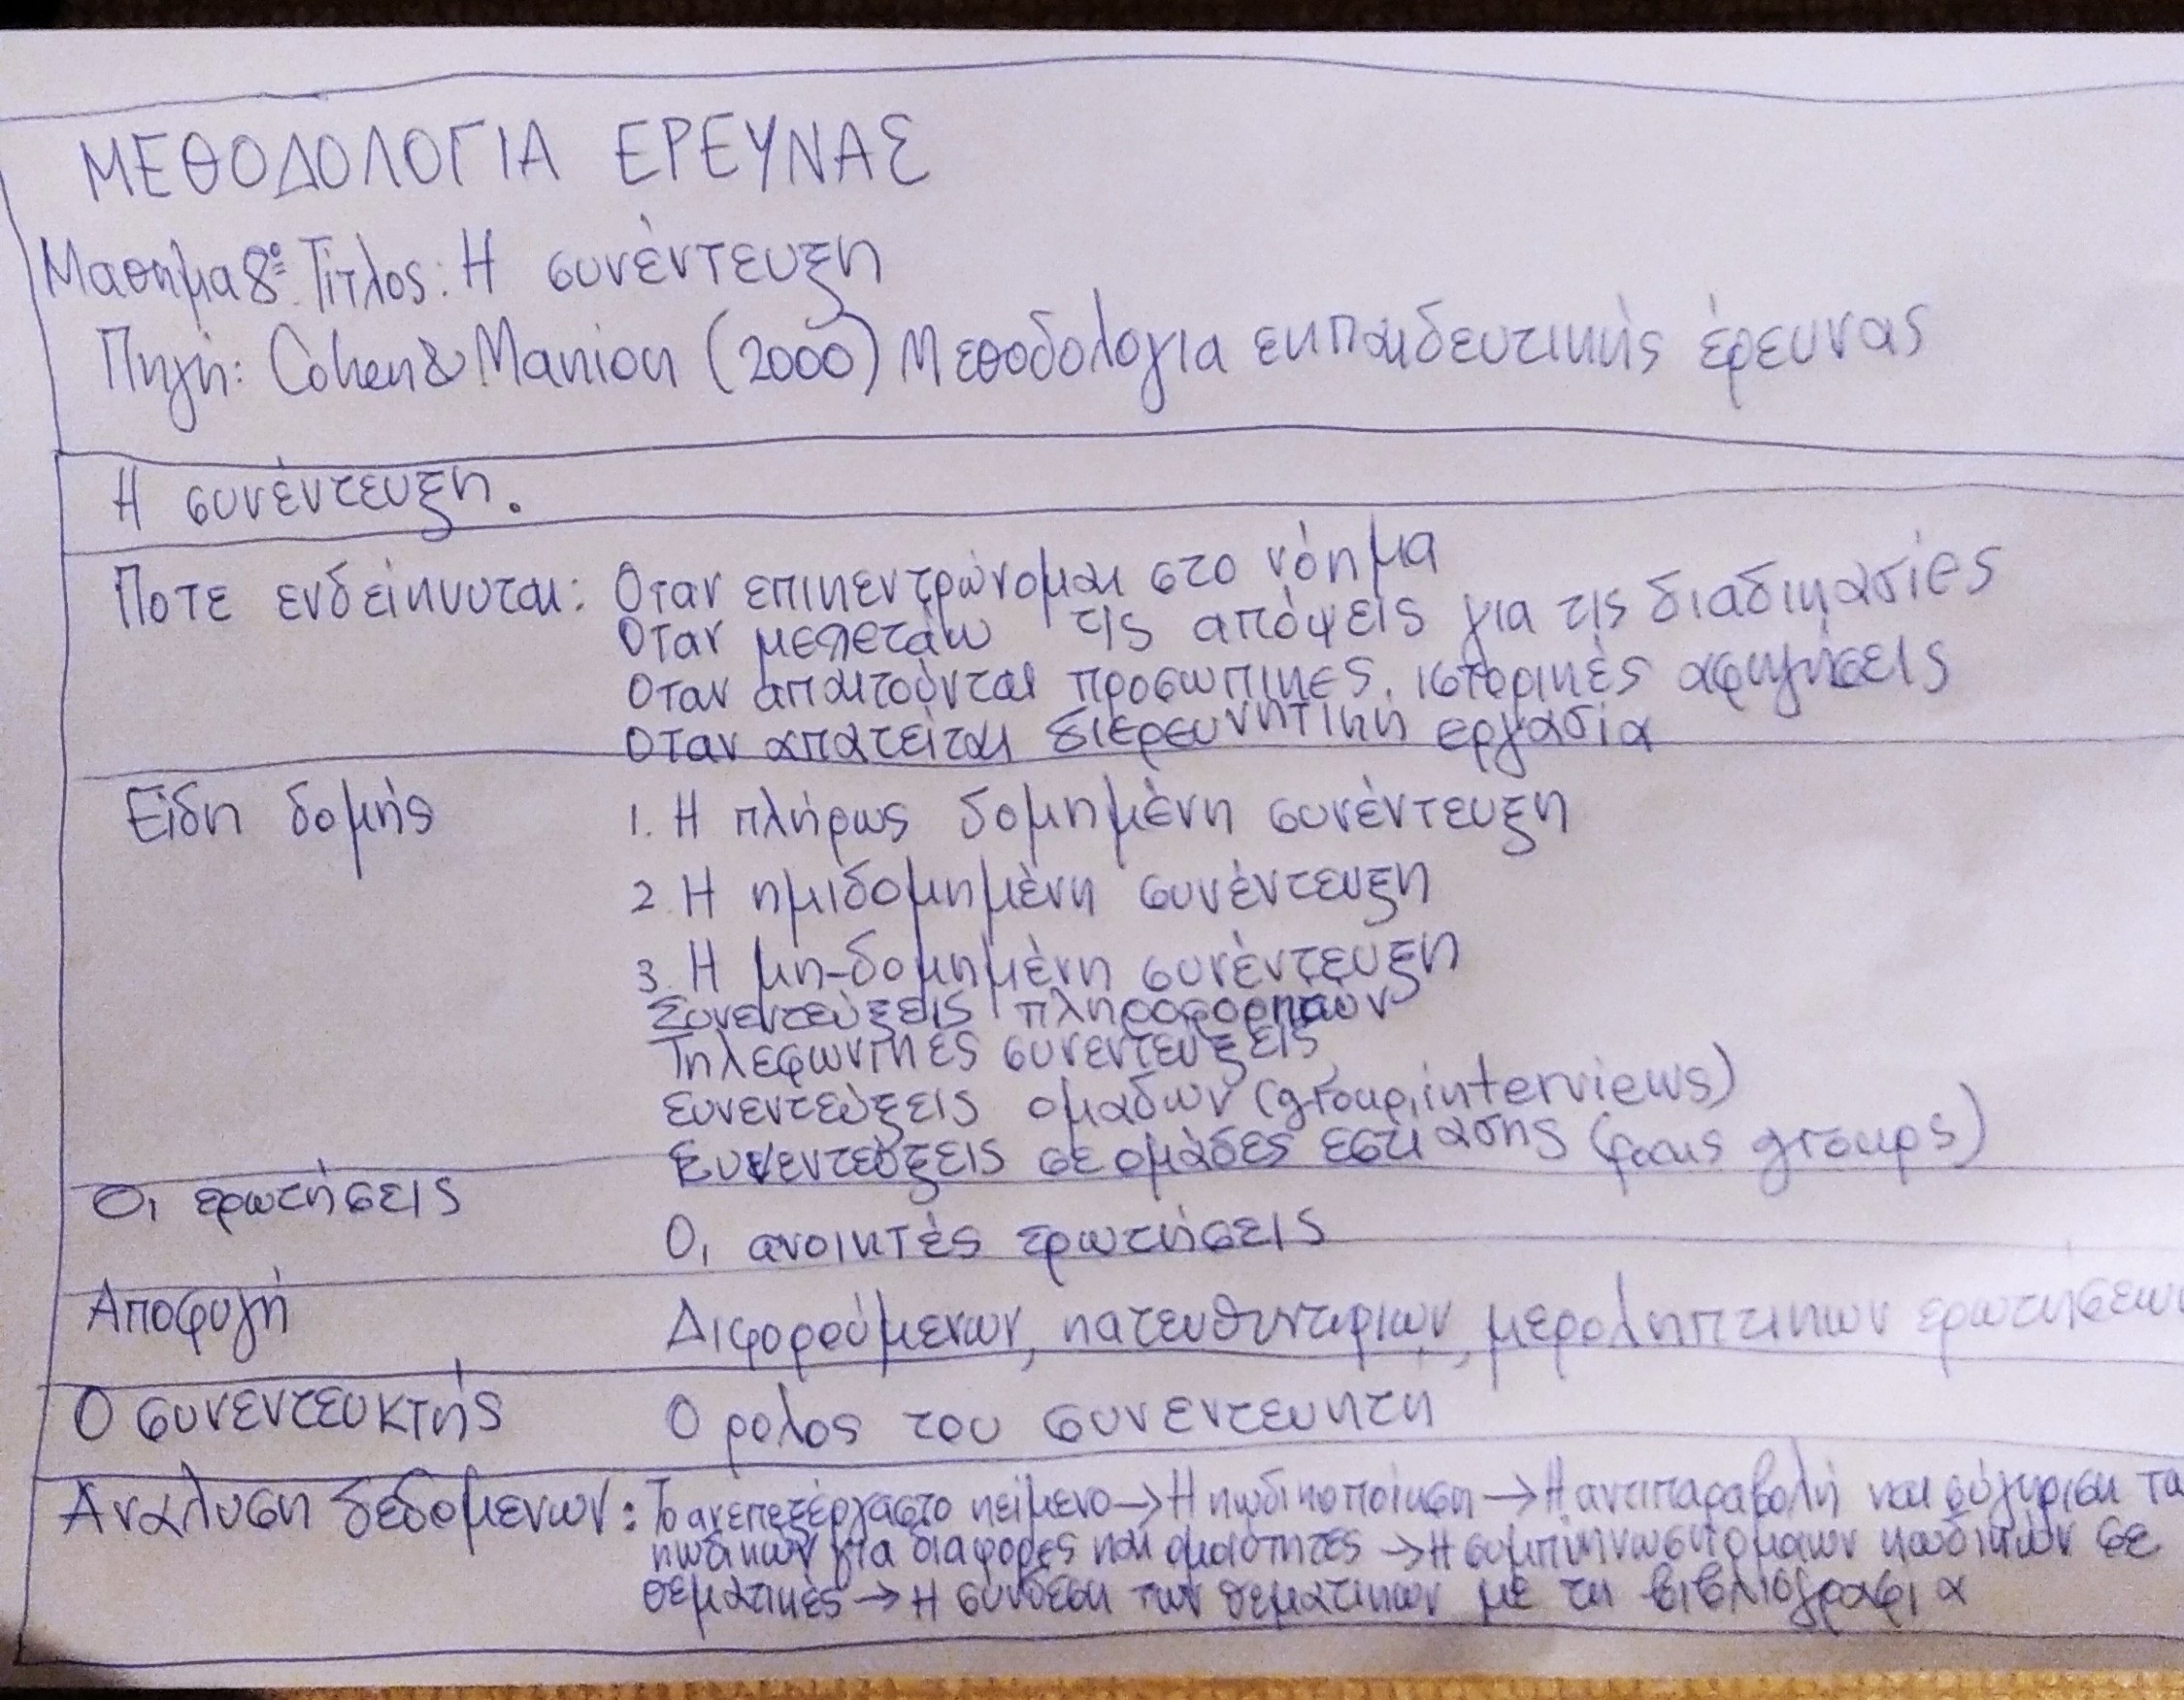 ΜΕΘΟΔΟΛΟΓΙΑ ΕΡΕΥΝΑΣ
Μαθημα 8º Τίτλος: Η συνέντευξη
Πηγή: Cohen & Manion (2000) Μεθοδολογια εκπαιδευτικής έρευνας
Η συνέντευξη.
Ποτε ενδείκνυται: Οταν επικεντρώνομαι στο νόημα
Οταν μελετάω τις απόψεις για τις διαδικασίες
Οταν απαιτούνται προσωπικες, ιστορικές αφηγήσεις
Οταν απατείται διερευνητική εργασία
Είδη δομής 1. Η πλήρως δομημένη συνέντευξη
2. Η ημιδομημένη συνέντευξη
3. Η μη-δομημένη συνέντευξη
Συνεντεύξεις πληροφορητών
Τηλεφωνικές συνεντεύξεις
Συνεντεύξεις ομάδων (group interviews)
Συνεντεύξεις σε ομάδες εστιασης (focus groups)
Οι ερωτήσεις
Οι ανοικτές ερωτήσεις
Αποφυγή Διφορούμενων, κατευθυντηριων, μεροληπτικων ερωτήσεων
Ο συνεντευκτής Ο ρολος του συνεντευκτή
Ανάλυση δεδομενων: Το ανεπεξέργαστο κείμενο → Η κωδικοποίηση → Η αντιπαραβολή και σύγκριση τω
κωδικων για διαφορες και ομοιότητες → Η συμπύκνωση ομοιων κωδικών σε
θεματικές → Η σύνδεση των θεματικων με τη βιβλιογραφια